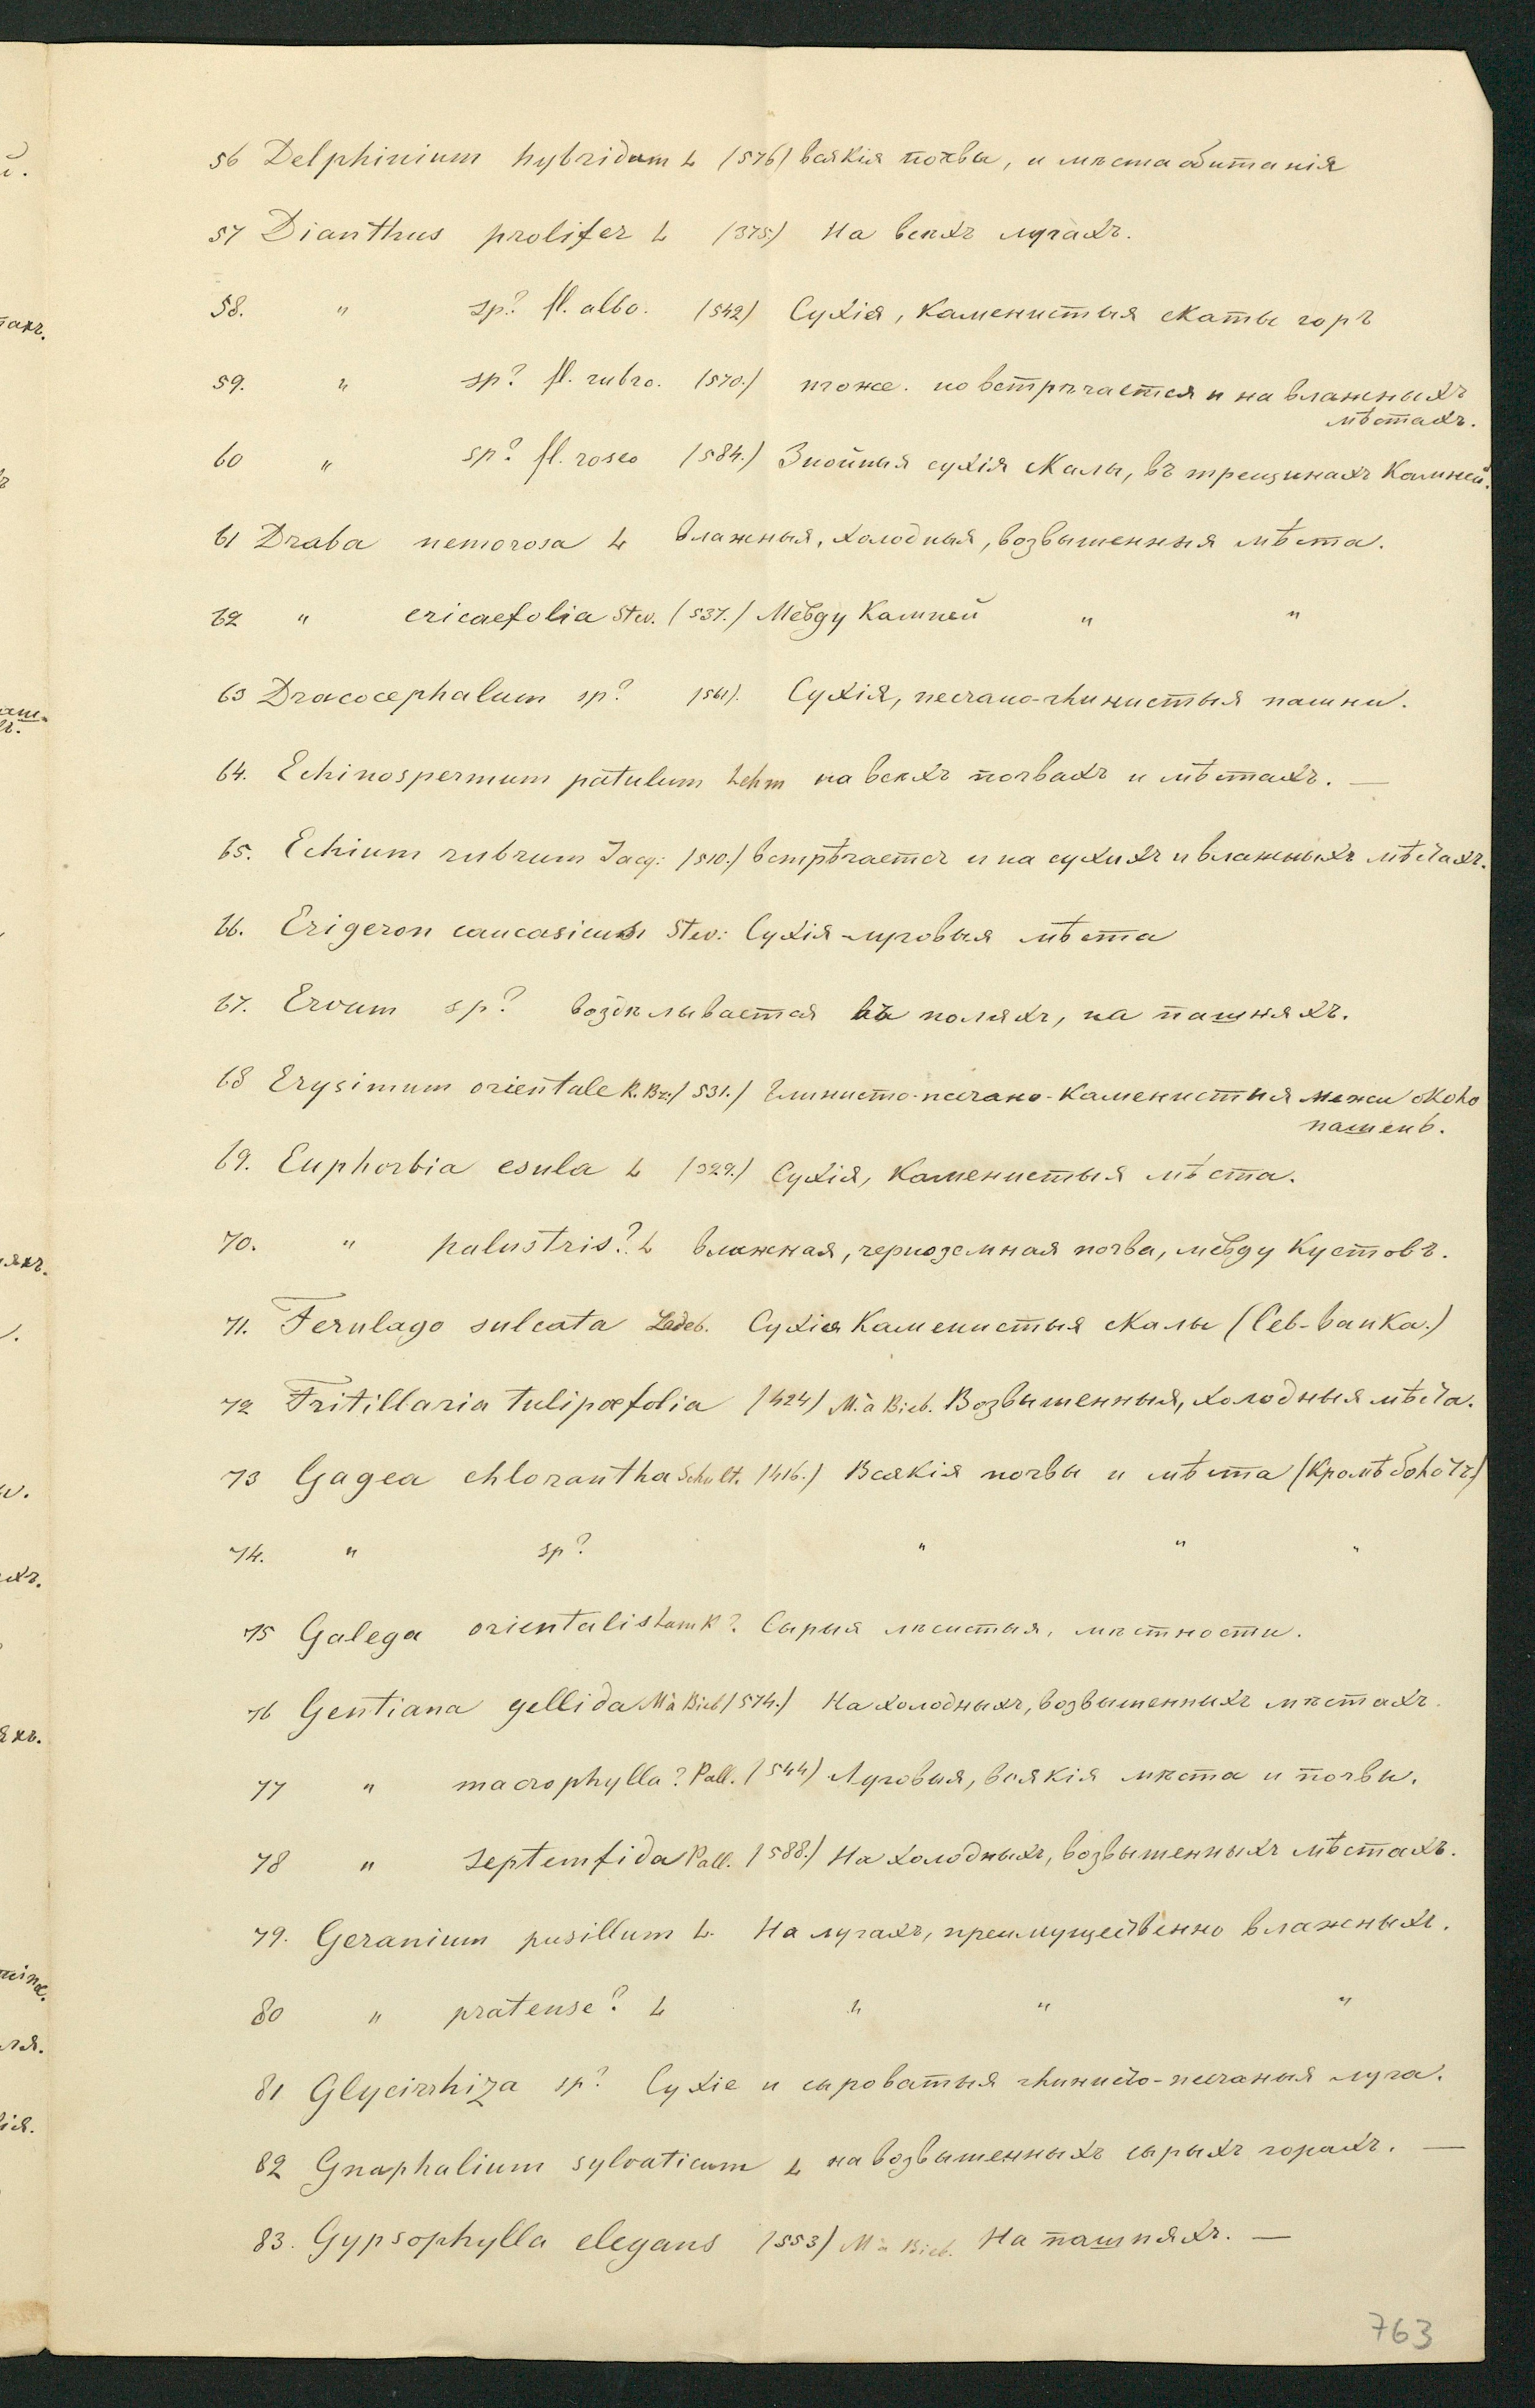 56 Delphinium hybridum L (576) всякія почвы, и мѣста обитанія
57 Dianthus prolifer L (375.) На всѣхъ лугахъ.
58. " sp? fl. albo. (542) Сухія, каменистыя скаты горъ
59. " sp? fl. rubro. (570.) тоже. но встрѣчается и на влажныхъ
мѣстахъ.
60 " sp? fl. roseo (584.) Знойныя сухія скалы, въ трещинахъ камней.
61 Draba nemorosa L влажныя, холодныя, возвышенныя мѣста.
62 " ericaefolia Stev. (537.) Между камней " "
63 Dracocephalum sp? (561). Сухія, песчано-глинистыя пашни.
64. Echinospermum patulum Lehm на всѣхъ почвахъ и мѣстахъ. —
65. Echium rubrum Jacq: (510.) встрѣчается и на сухихъ и влажныхъ мѣстахъ.
66. Erigeron caucasicus Stev: Сухія луговыя мѣста
67. Ervum sp? воздѣлывается въ поляхъ, на пашняхъ.
68 Erysimum orientale R. Br: (531.) Глинисто-песчано-каменистыя межи около
пашенъ.
69. Euphorbia esula L (329.) Сухія, каменистыя мѣста.
70. " palustris? L влажная, черноземная почва, между кустовъ.
71. Ferulago sulcata Ledeb. Сухія каменистыя скалы (Сев-ванка.)
72 Fritillaria tulipæfolia (424) M. à Bieb. Возвышенныя, холодныя мѣста.
73 Gagea chlorantha Schult. (416.) Всякія почвы и мѣста (кромѣ болотъ)
74. " sp? " " "
75 Galega orientalis Lamk? Сырыя лѣсистыя, мѣстности.
76 Gentiana gellida M à Bieb (574.) На холодныхъ, возвышенныхъ мѣстахъ.
77 " macrophylla? Pall. (544) Луговыя, всякія мѣста и почвы.
78 " septemfida Pall. (588.) На холодныхъ, возвышенныхъ мѣстахъ.
79. Geranium pusillum L. На лугахъ, преимущественно влажныхъ.
80 " pratense? L " " "
81 Glycirrhiza sp? Сухіе и сыроватыя глинисто-песчаныя луга.
82 Gnaphalium sylvaticum L на возвышенныхъ сырыхъ горахъ. —
83. Gypsophylla elegans (553) M à Bieb. На пашняхъ. —
763